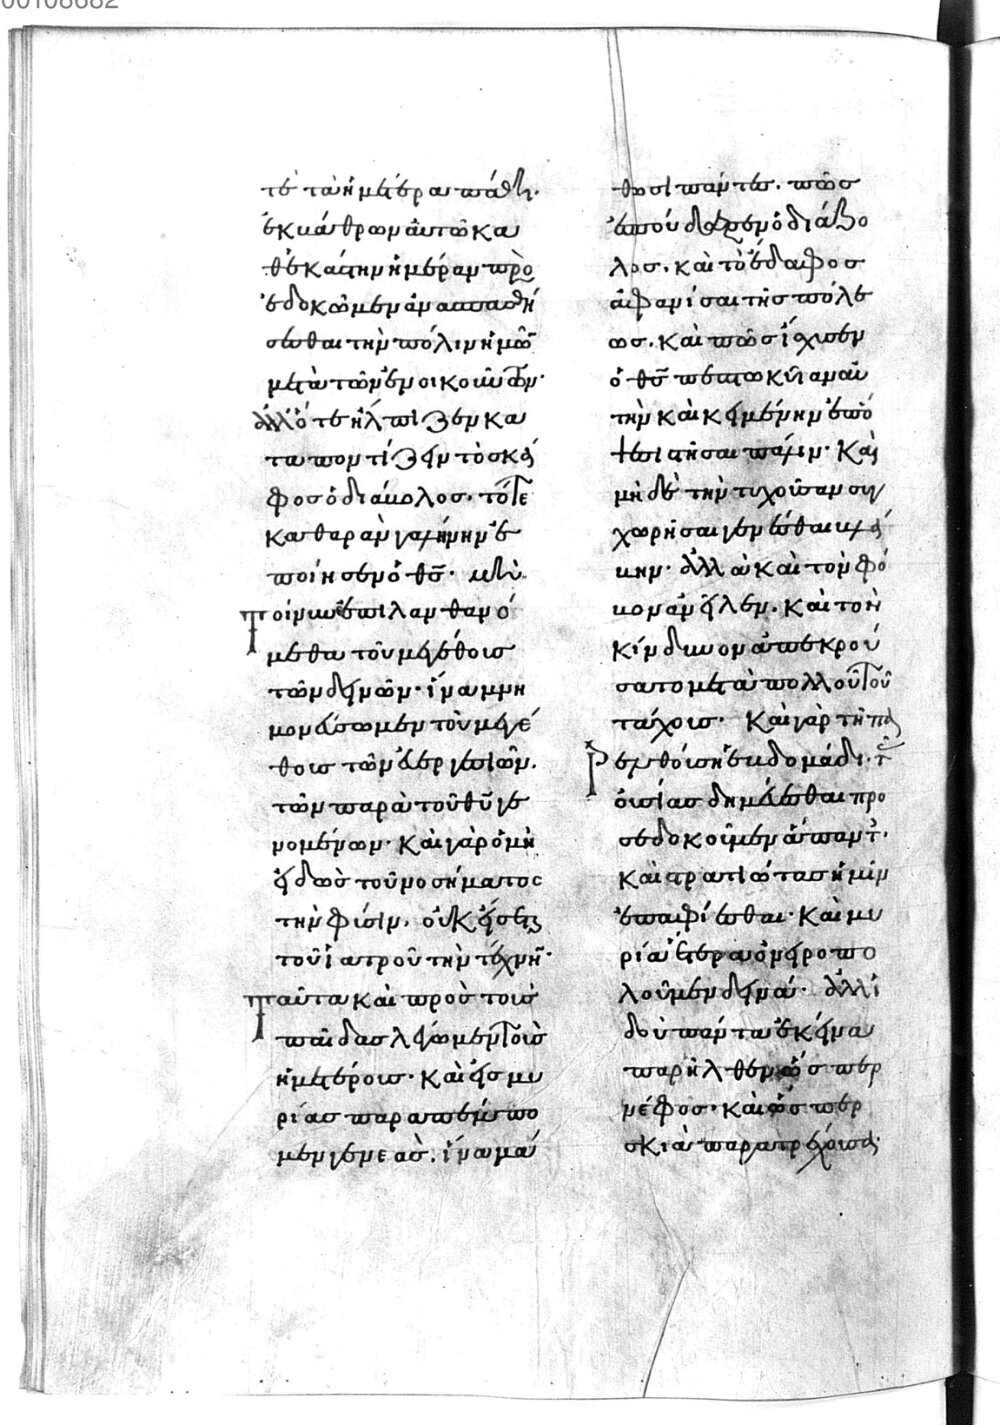 00108682
τὲ τὰ ἡμέτερα πάθη.
ἐκ βάθρων αὐτῶ κα
θἑκάστην ἡμέραν προ
ἐδοκῶμεν ἀνασπασθή
σεσθαι τὴν πόλιν ἡμῶν
μετὰ τῶν ἐνοικούντων·
ἀλλ' ὅτε ἤλπιζεν κα
ταποντίζειν τὸ σκά
φος ὁ διάβολος. τότε
καθαρὰν γαλήνην ἐ
ποίησεν ὁ θς̄· μὴ
τοίνυν ἐπιλανθανό
μεθα τοῦ μεγέθους
τῶν δεινῶν· ἵνα μνη
μονεύσωμεν τὸν μεγέ
θους τῶν εὐεργεσιῶν.
τῶν παρὰ τοῦ θῡ γε
νομένων· Καὶ γὰρ ὁ μὴ
εἰδὼς τοῦ νοσήματος
τὴν φύσιν, οὐκ εἴσεται
τοῦ ἰατροῦ τὴν τέχνην·
ταῦτα καὶ πρὸς τοὺς
παῖδας λέγωμεν τοὺς
ἡμετέρους. Καὶ εἰς μυ
ρίας παραπέμπο
μεν γενεὰς. ἵνα μά
θωσι πάντες. πῶς
ἐσπούδασεν ὁ διάβο
λος. καὶ τὸ ἔδαφος
ἀφανίσαι τῆς πόλε
ως. Καὶ πῶς ἴσχυσεν
ὁ θς̄ πεπτωκυῖαν αὐ
τὴν καὶ κειμένην ἐπὸ
ψεσι στῆσαι πάλιν· Καὶ
μηδὲ τὴν τυχοῦσαν συγ
χωρῆσαι γενέσθαι βλά
βην· ἀλλὰ καὶ τὸν φό
βον ἀνεῖλεν. καὶ τὸν
κίνδυνον ἀπεκρού
σατο μετὰ πολλοῦ τοῦ
τάχους· Καὶ γὰρ τῆ πα
ρελθούση ἑβδομάδι. τ
οὐσίας δημεύεσθαι προ
σεδοκοῦμεν ἁπάντ·
καὶ στρατιώτας ἡμῖν
ἐπαφίεσθαι· Καὶ μυ
ρία ἕτερα ὀνειροπο
λοῦμεν δεινά· ἀλλ' ἰ
δοὺ πάντα ἐκεῖνα
παρῆλθεν ὥσπερ
νέφος· καὶ ὥσπερ
σκιὰ παρατρέχουσα·